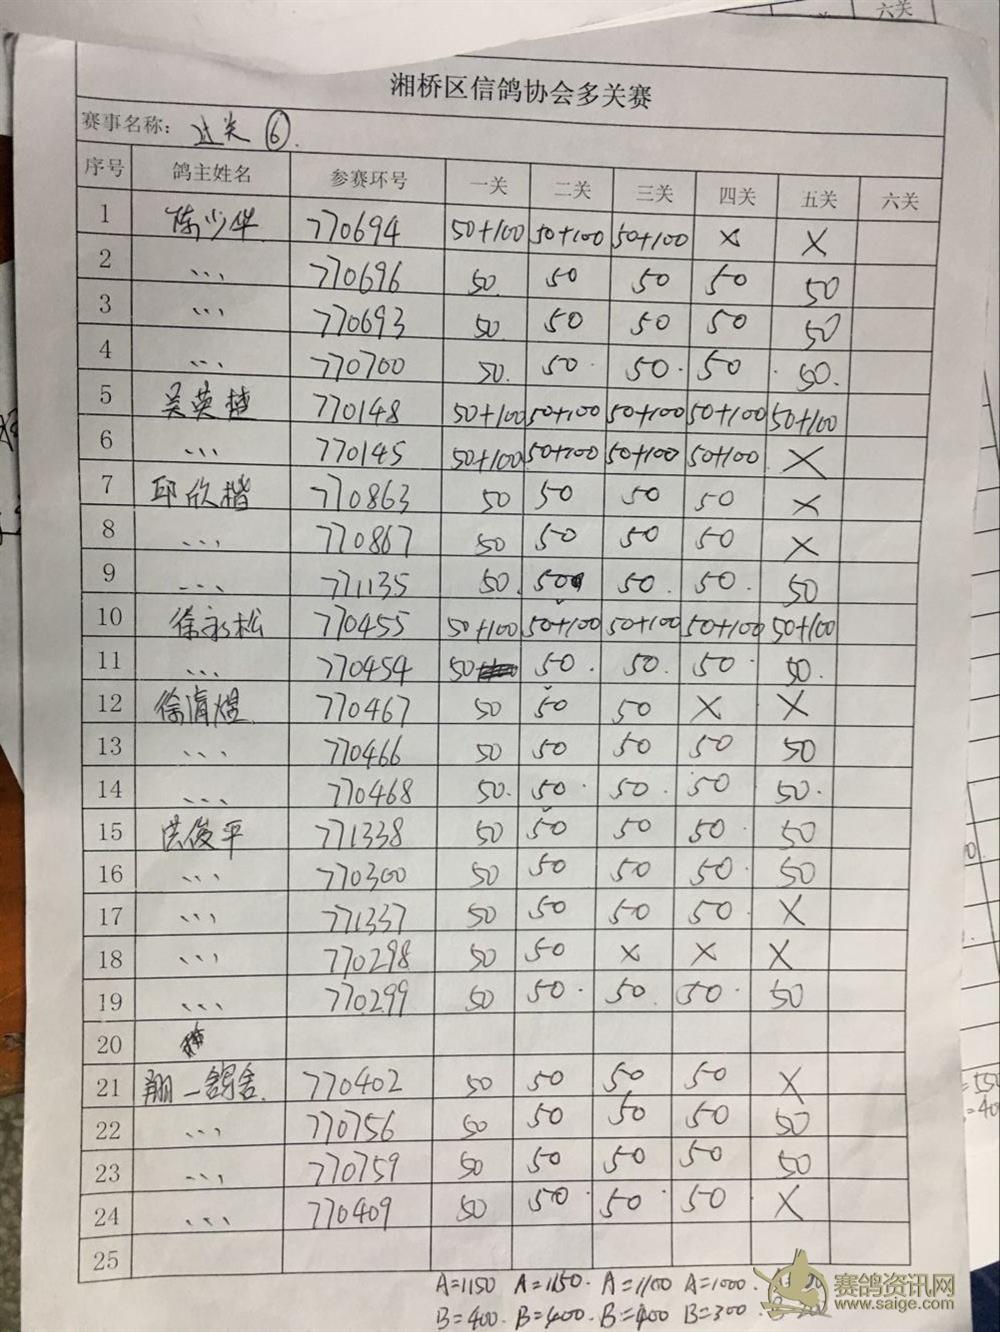 六关
湘桥区信鸽协会多关赛
赛事名称: 过关 ⑥.
序号 鸽主姓名 参赛环号 一关 二关 三关 四关 五关 六关
1 陈少华 770694 50+100 50+100 50+100 × ×
2 、、、 770696 50. 50 50 50 50
3 、、、 770693 50. 50 50 50 50
4 、、、 770700 50. 50. 50. 50. 50.
5 吴英植 770148 50+100 50+100 50+100 50+100 50+100
6 、、、 770145 50+100 50+100 50+100 50+100 ×
7 邱欣楷 770863 50 50 50 50 ×
8 、、、 770867 50 50 50 50 ×
9 、、、 771135 50. 50 50. 50. 50
10 徐永松 770455 50+100 50+100 50+100 50+100 50+100
11 、、、 770454 50 50. 50. 50. 50.
12 徐 煜 770467 50 50 50 × ×
13 、、、 770466 50 50 50 50 50
14 、、、 770468 50. 50. 50. 50 50.
15 洪俊平 771338 50 50 50 50. 50
16 、、、 770300 50 50 50 50. 50
17 、、、 771337 50 50 50 50. ×
18 、、、 770298 50 50 × × ×
19 、、、 770299 50 50. 50. 50. 50
20
21 翔一鸽舍. 770402 50 50 50 50 ×
22 、、、 770756 50 50 50 50 50
23 、、、 770759 50 50 50 50 50
24 、、、 770409 50 50. 50. 50 ×
25
A=1150 A=1150. A=1100 A=1000.
B=400. B=400. B=400 B=300
赛鸽资讯网
www.saige.com